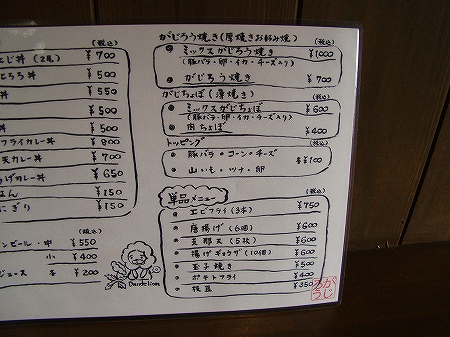 (税込)
とじ丼 (2尾) ¥700
とろろ丼 ¥500
丼 ¥550
¥500
丼 ¥500
フライカレー丼 ¥800
天カレー丼 ¥700
げカレー丼 ¥650
はん ¥150
にぎり ¥150
(税込)
ビール・中 ¥550
小 ¥400
ジュース 本 ¥200
Dandelion
がじろう焼き(厚焼きお好み焼)
(税込)
ミックスがじろう焼き ¥1000
(豚バラ・卵・イカ・チーズ入り)
がじろう焼き ¥700
がじちょぼ(薄焼き)
(税込)
ミックスがじちょぼ ¥600
(豚バラ・卵・イカ・チーズ入り)
肉ちょぼ ¥400
トッピング
(税込)
豚バラ・コーン・チーズ
各¥100
山いも・ツナ・卵
単品メニュー
(税込)
エビフライ(3本) ¥750
唐揚げ(6個) ¥600
支那天(5枚) ¥600
揚げギョウザ(10個) ¥600
玉子焼き ¥500
ポテトフライ ¥400
枝豆 ¥350
がじろう